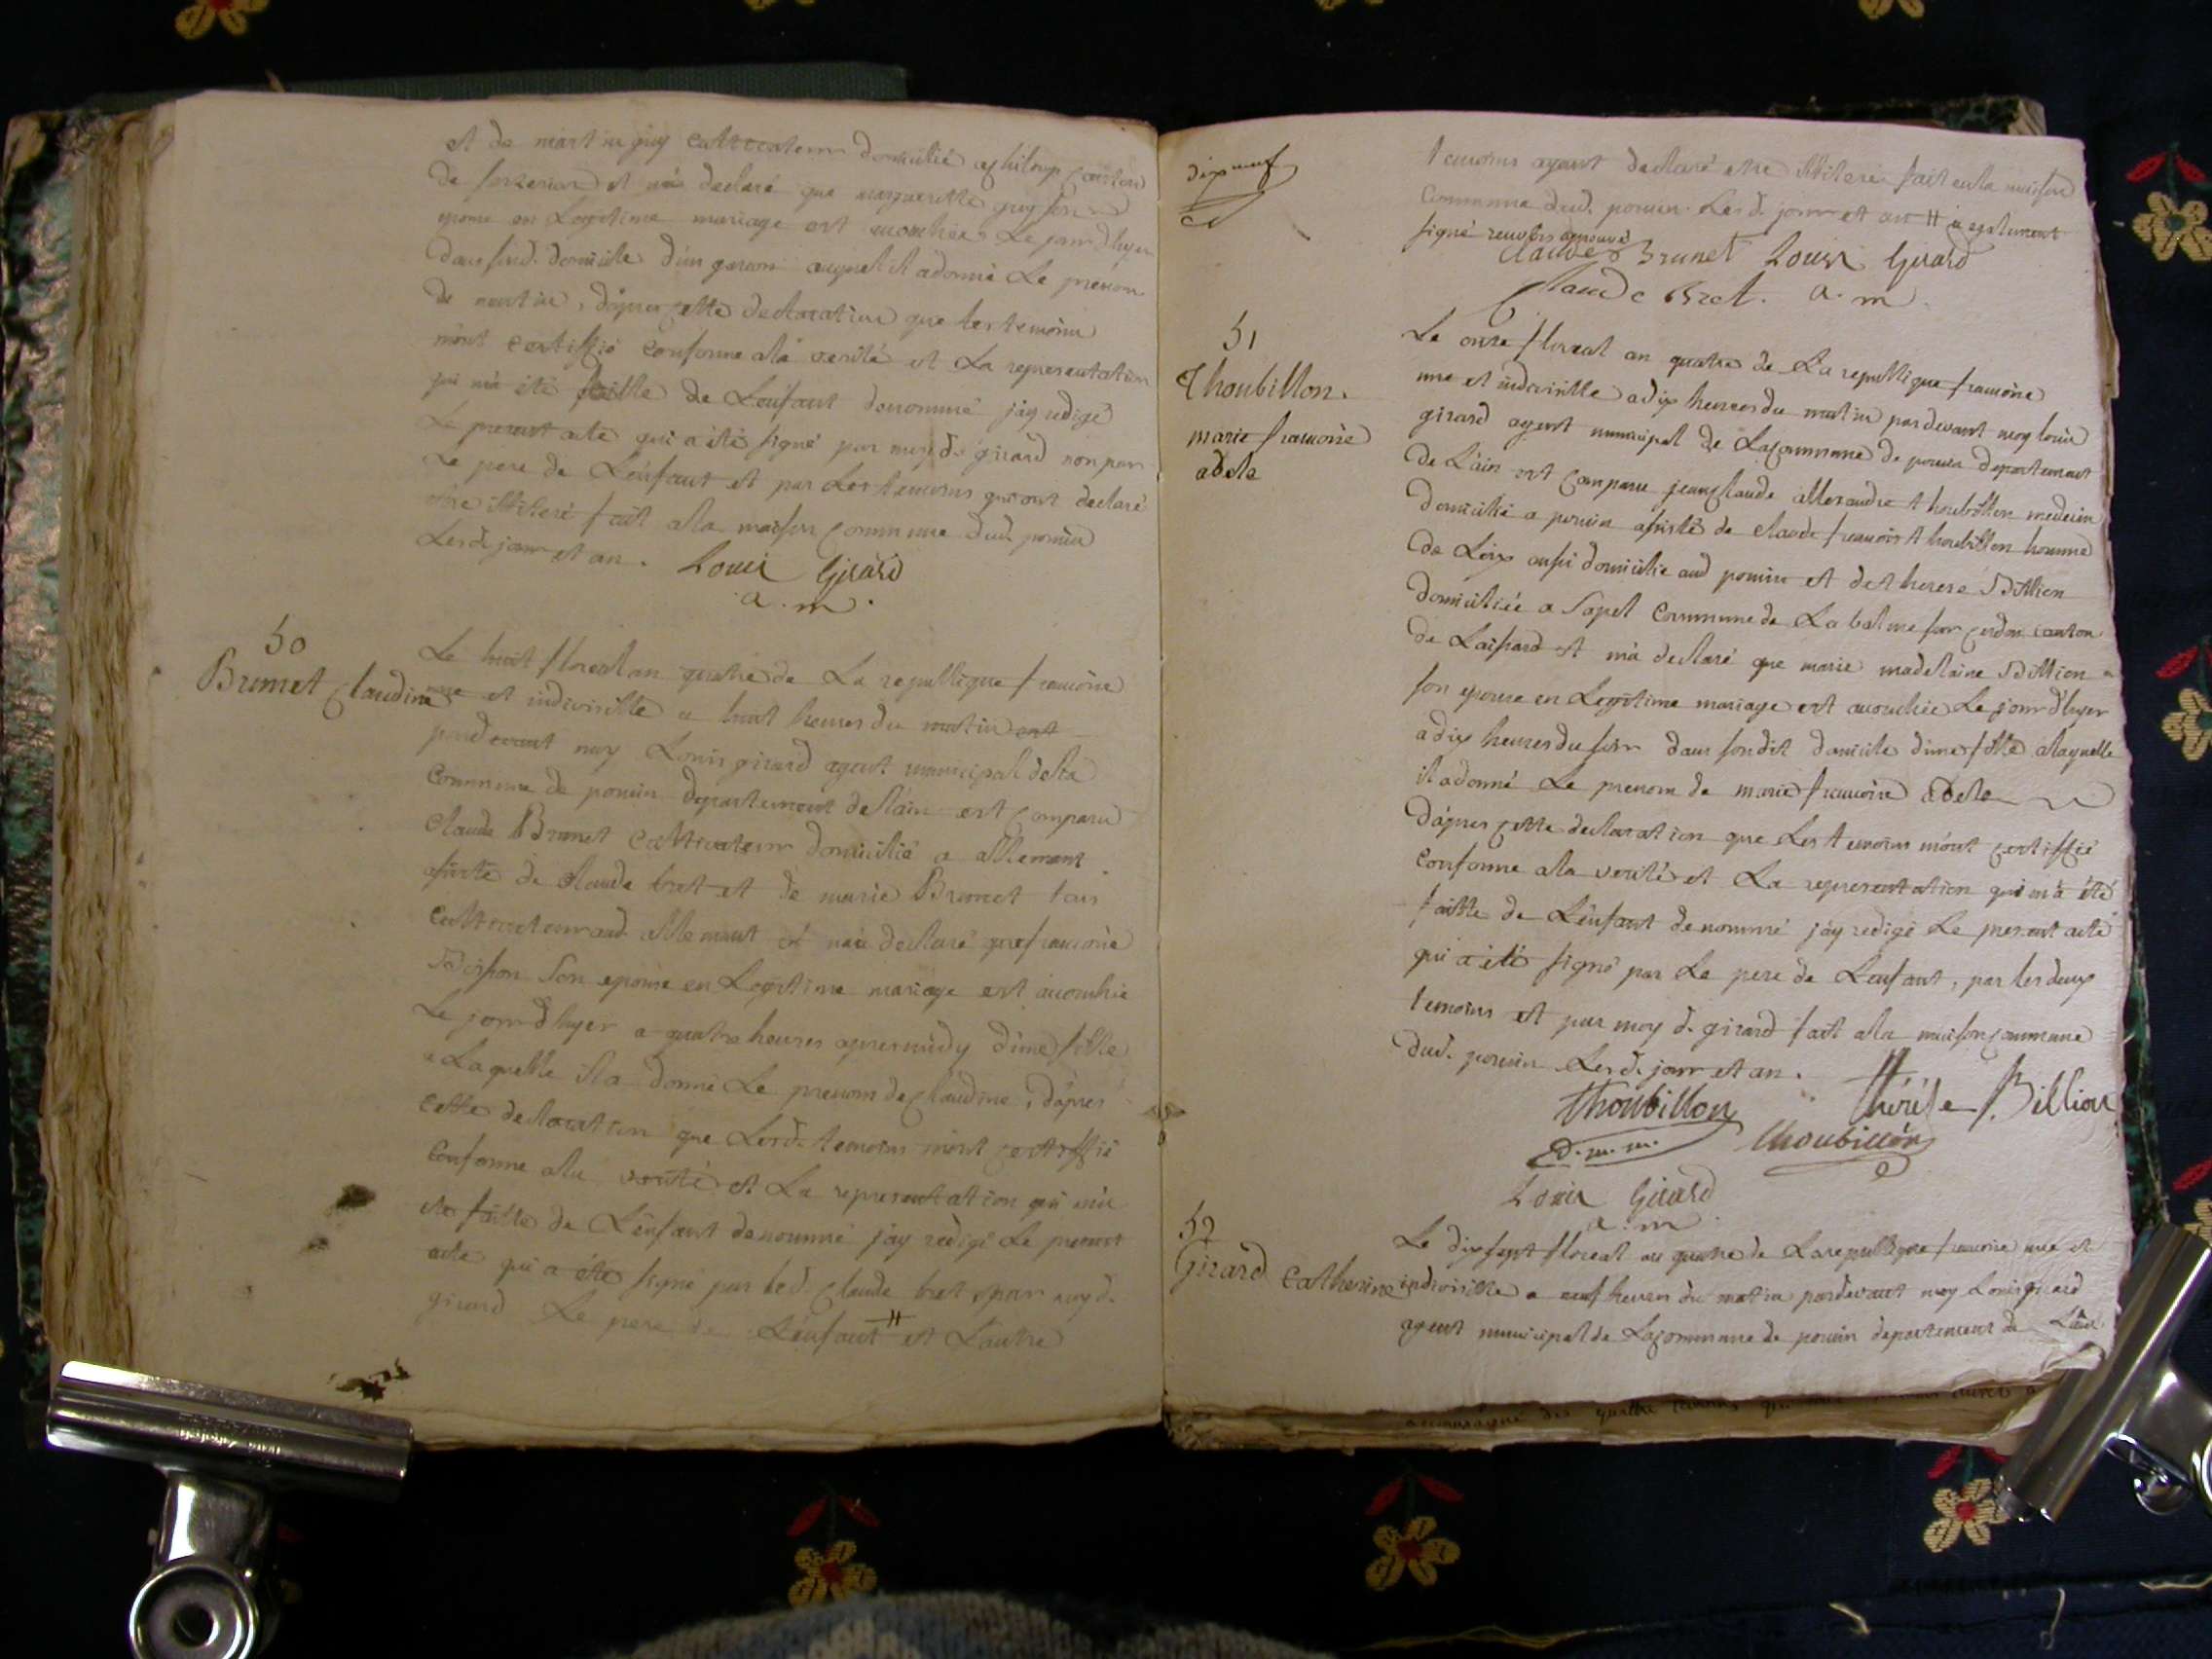 et de martin guy cultivateur domicilié a chiloup canton
de et m'a declaré que margueritte guy son
epouse en Legitime mariage est accouchée Le jour d'hyer
dans sond. domicile d'un garcon auquel il a donné Le prenom
de martin, d'apres cette declaration que les temoins
m'ont certiffié conforme a la verité et La representation
qui m'a été faitte de L'enfant denommé j'ay redigé
Le present acte qui a été signé par moy d. girard non par
Le pere de L'enfant et par Les temoins qui ont declaré
etre illiteré fait a la maison commune dud. poncin
Lesd. jour et an. Louis Girard
a. m.
50
Brunet Claudine
Le huit floreal an quatre de La republlique francoise
une et indivisiblle a huit heures du matin est
pardevant moy Louis girard agent municipal de la
Commune de poncin departement de l'ain est comparu
Claude Brunet cultivateur domicilié a allement
assisté de claude bret et de marie Brunet tous
cultivateur aud. allemant et m'a declaré que francoise
son epouse en Legitime mariage est accouchée
Le jour d'hyer a quatre heures apres midy d'une fille
a Laquelle il a donné Le prenom de claudine, d'apres
cette declaration que Lesd. temoins m'ont certiffié
conforme a la verité et La representation qui m'a
eté faitte de L'enfant denommé j'ay redigé Le present
acte qui a été signé par led. claude bret, par moy d.
girard Le pere de L'enfant # et L'autre
dix neuf
temoins ayant declaré etre illiteré fait en la maison
commune dud. poncin Lesd. jour et an # a egalement
signé renvois aprouvé
Claude Brunet Louis Girard
Claude Bret. a. m.
51
Thoubillon.
marie francoise
adele
Le onze floreal an quatre de La republlique francoise
une et indivisiblle a dix heures du matin pardevant moy louis
girard agent municipal de La commune de poncin departement
de L'ain est comparu jean claude allexandre thoubillon medecin
domicilié a poncin assisté de claude francois thoubillon homme
de Loix aussi domicilié aud poncin et de therese Billion
domiciliée a Sapel commune de La balme sur cerdon canton
de et m'a declaré que marie madelaine Billion
son epouse en Legitime mariage est accouchée Le jour d'hyer
a dix heures du soir dans sondit domicile d'une fille a laquelle
il a donné Le prenom de marie francoise adele
D'apres cette declaration que Les temoins m'ont certiffié
conforme a la verité et La representation qui m'a été
faitte de L'enfant denommé j'ay redigé Le present acte
qui a été signé par Le pere de L'enfant, par les deux
temoins et par moy d. girard fait a la maison commune
dud. poncin Lesd. jour et an.
Thoubillon Thérése Billion
d. m. m. thoubillon
Louis Girard
a. m.
52
Girard Catherine
Le dix sept floreal an quatre de La republlique francoise une et
indivisiblle a neuf heures du matin pardevant moy Louis girard
agent municipal de La commune de poncin departement de L'ain